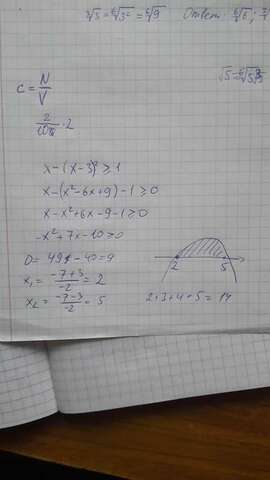 ∛5 = ⁶√3² = ⁶√9 Ответ: ⁶√6 ;
C = N/V
· 2
x-(x-3)² ≥ 1
x-(x²-6x+9)-1 ≥ 0
x-x²+6x-9-1 ≥ 0
-x²+7x-10 ≥ 0
D = 49 - 40 = 9
x₁ = (-7+3)/-2 = 2
x₂ = (-7-3)/-2 = 5
2 5
2+3+4+5 = 14